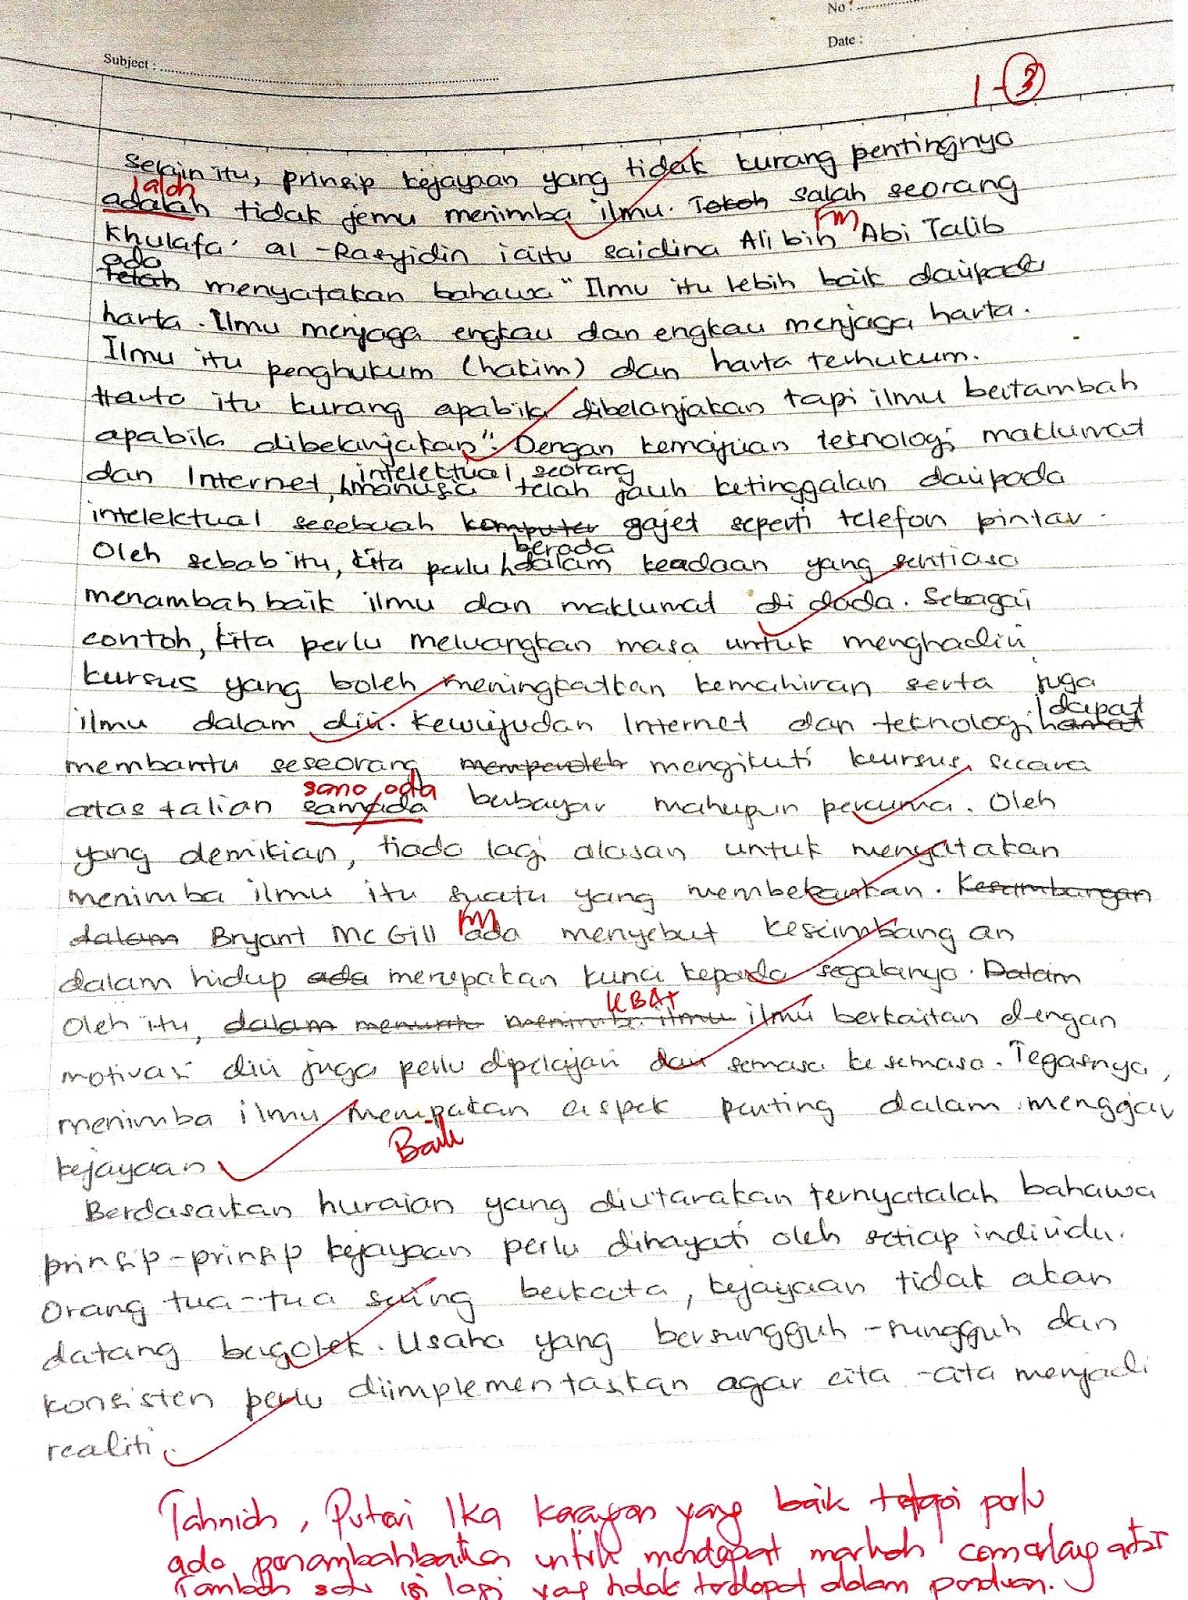 No :
Date :
Subject :
1-3
Selain itu, prinsip kejayaan yang tidak kurang pentingnya
ialah
adalah tidak jemu menimba ilmu. Tokoh salah seorang
FM
Khulafa' al-Rasyidin iaitu saidina Ali bin Abi Talib
ada
telah menyatakan bahawa "Ilmu itu lebih baik daripada
harta. Ilmu menjaga engkau dan engkau menjaga harta.
Ilmu itu penghukum (hakim) dan harta terhukum.
Harta itu kurang apabila dibelanjakan tapi ilmu bertambah
apabila dibelanjakan". Dengan kemajuan teknologi maklumat
intelektual seorang
dan Internet, manusia telah jauh ketinggalan daripada
intelektual sesebuah komputer gajet seperti telefon pintar.
berada
Oleh sebab itu, kita perlu dalam keadaan yang sentiasa
menambah baik ilmu dan maklumat di dada. Sebagai
contoh, kita perlu meluangkan masa untuk menghadiri
kursus yang boleh meningkatkan kemahiran serta juga
dapat
ilmu dalam diri. Kewujudan Internet dan teknologi hamat
membantu seseorang memperoleh mengikuti kursus secara
sama ada
atas talian samada berbayar mahupun percuma. Oleh
yang demikian, tiada lagi alasan untuk menyatakan
menimba ilmu itu suatu yang membebankan. Keseimbangan
FM
dalam Bryant McGill ada menyebut keseimbangan
dalam hidup ada merupakan kunci kepada segalanya. Dalam
KBAT
Oleh itu, dalam menuntu menimba ilmu ilmu berkaitan dengan
motivasi diri juga perlu dipelajari dari semasa ke semasa. Tegasnya,
menimba ilmu merupakan aspek penting dalam menggari
Baik
kejayaan
Berdasarkan huraian yang diutarakan ternyatalah bahawa
prinsip-prinsip kejayaan perlu dihayati oleh setiap individu.
Orang tua-tua sering berkata, kejayaan tidak akan
datang bergolek. Usaha yang bersungguh-sungguh dan
konsisten perlu diimplementasikan agar cita-cita menjadi
realiti.
Tahniah, Puteri Ika karangan yang baik tetapi perlu
ada penambahbaikan untuk mendapat markah cemerlang
Tambah satu isi lagi yang tidak terdapat dalam panduan.